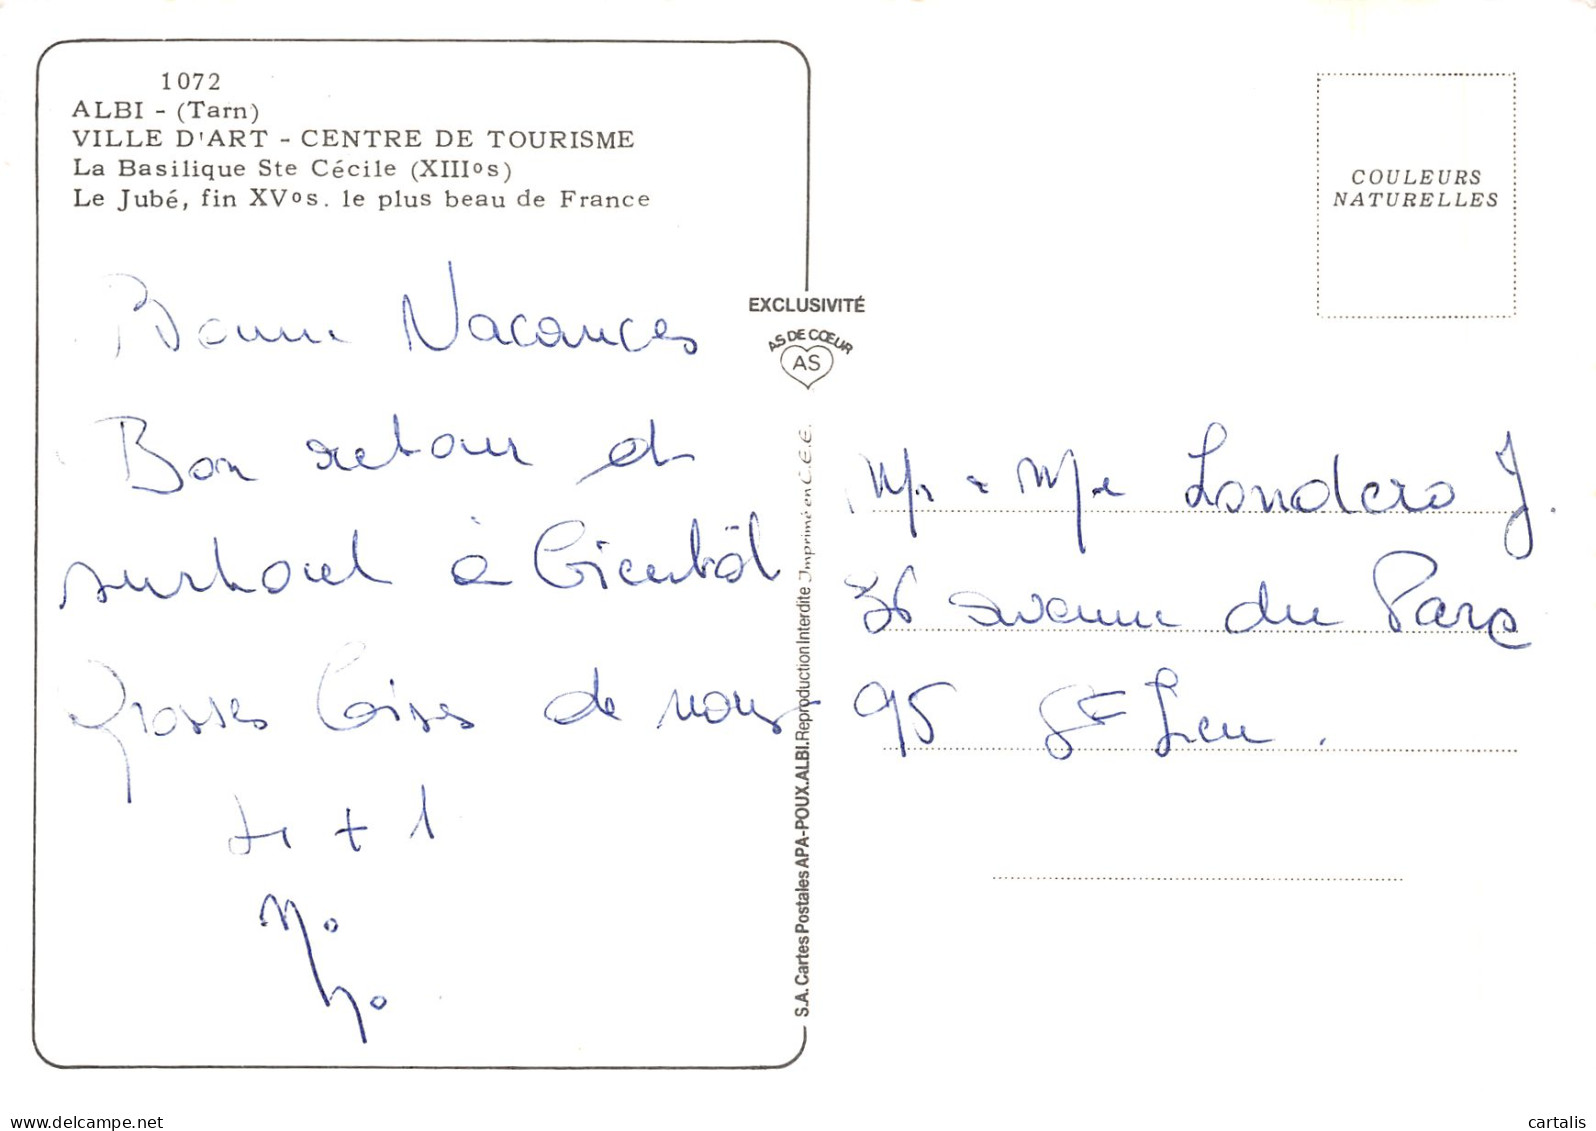 1072
ALBI - (Tarn)
VILLE D'ART - CENTRE DE TOURISME
La Basilique Ste Cécile (XIIIos)
Le Jubé, fin XVos. le plus beau de France
Bonne Vacances
Bon retour et
surtout à bientôt
Grosses bises de nous
4 + 1
EXCLUSIVITÉ
AS DE CŒUR
AS
S.A. Cartes Postales APA-POUX.ALBI.Reproduction Interdite Imprimé en C.E.E.
COULEURS
NATURELLES
Mr & Me Londero J
36 avenue du Parc
95 St Leu.
my-paper-shop
cartalis